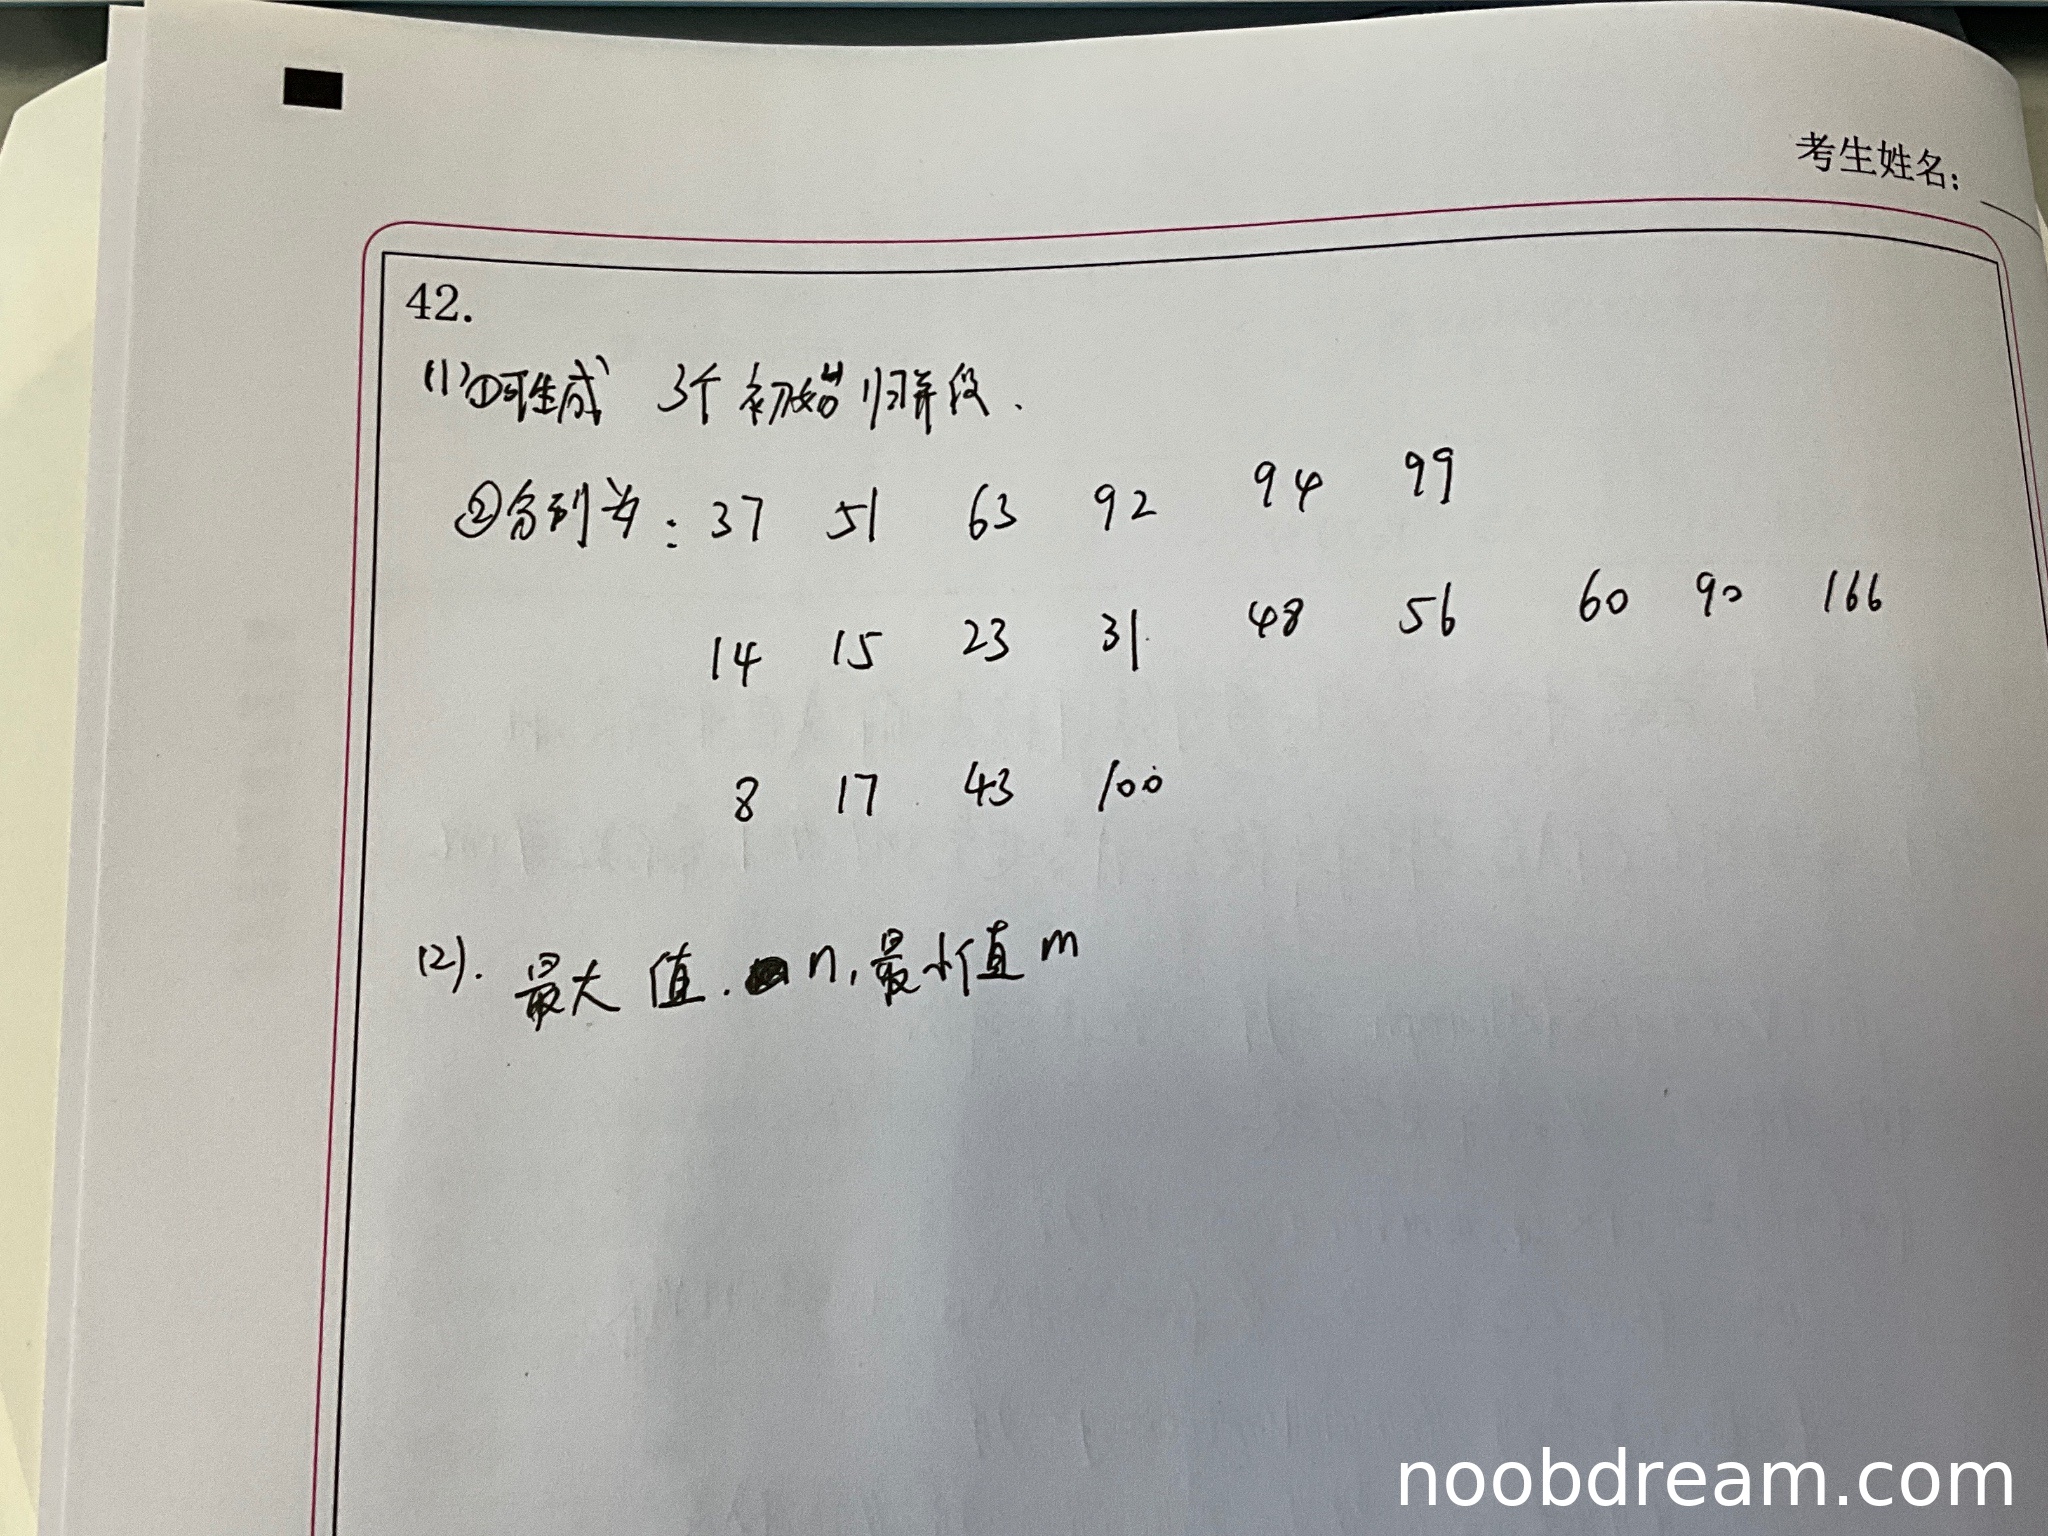 考生姓名:
42.
(1)①可生成 3个初始归并段.
②分别为: 37 51 63 92 94 99
14 15 23 31 48 56 60 90 166
8 17 43 100
(2). 最大值. n, 最小值 m
noobdream.com